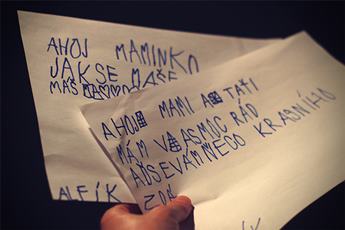 AHOJ MAMINKO
JAKSE MAŠE
MÁŠ
ALFÍK
AHOJ MAMI A TAŤI
MÁM VASMOC RÁD
AŤSEVÁM NECO KRASNÍHO
ZDÁ
ÍK